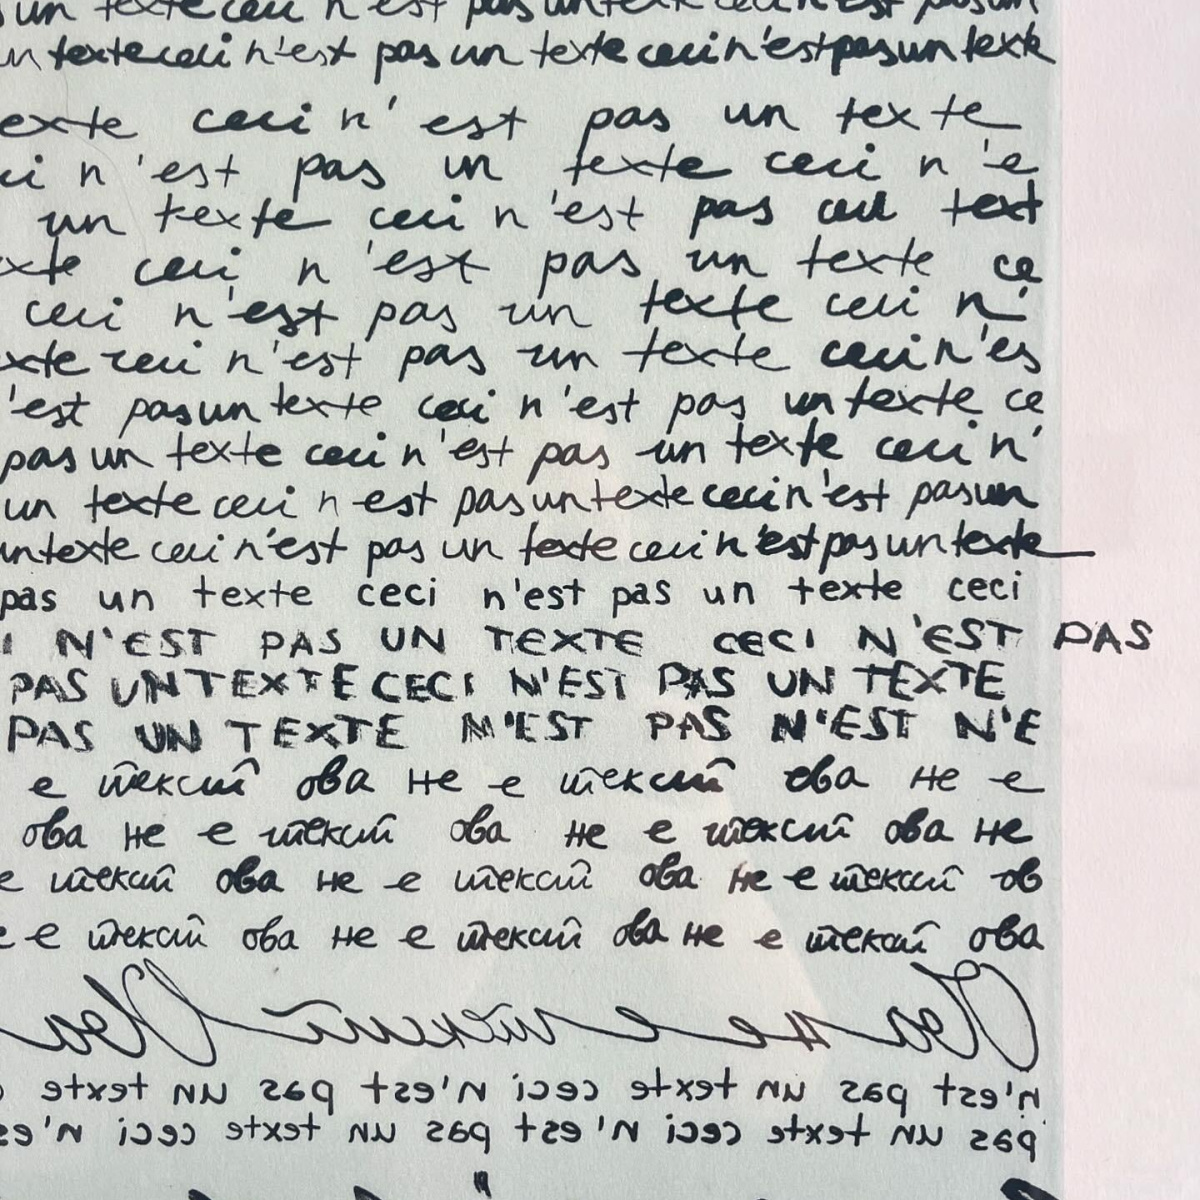 un texte ceci n'est pas un texte ceci n'est pas un
un texte ceci n'est pas un texte ceci n'est pas un texte
exte ceci n'est pas un texte
ci n'est pas un texte ceci n'e
un texte ceci n'est pas text
xte ceci n'est pas un texte ce
ceci n'est pas un texte ceci n'
xte ceci n'est pas un texte ceci n'es
'est pas un texte ceci n'est pas un texte ce
pas un texte ceci n'est pas un texte ceci n'
un texte ceci n'est pas un texte ceci n'est pas un
un texte ceci n'est pas un texte ceci n'est pas un texte
pas un texte ceci n'est pas un texte ceci
I N'EST PAS UN TEXTE CECI N'EST PAS
PAS UN TEXTE CECI N'EST PAS UN TEXTE
PAS UN TEXTE N'EST PAS N'EST N'E
е текст ова не е текст ова не е
ова не е текст ова не е текст ова не
е текст ова не е текст ова не е текст ов
е е текст ова не е текст ова не е текст ова
Ова не е текст Ова
n'est pas un texte ceci n'est pas un texte c
pas un texte ceci n'est pas un texte ceci n'es